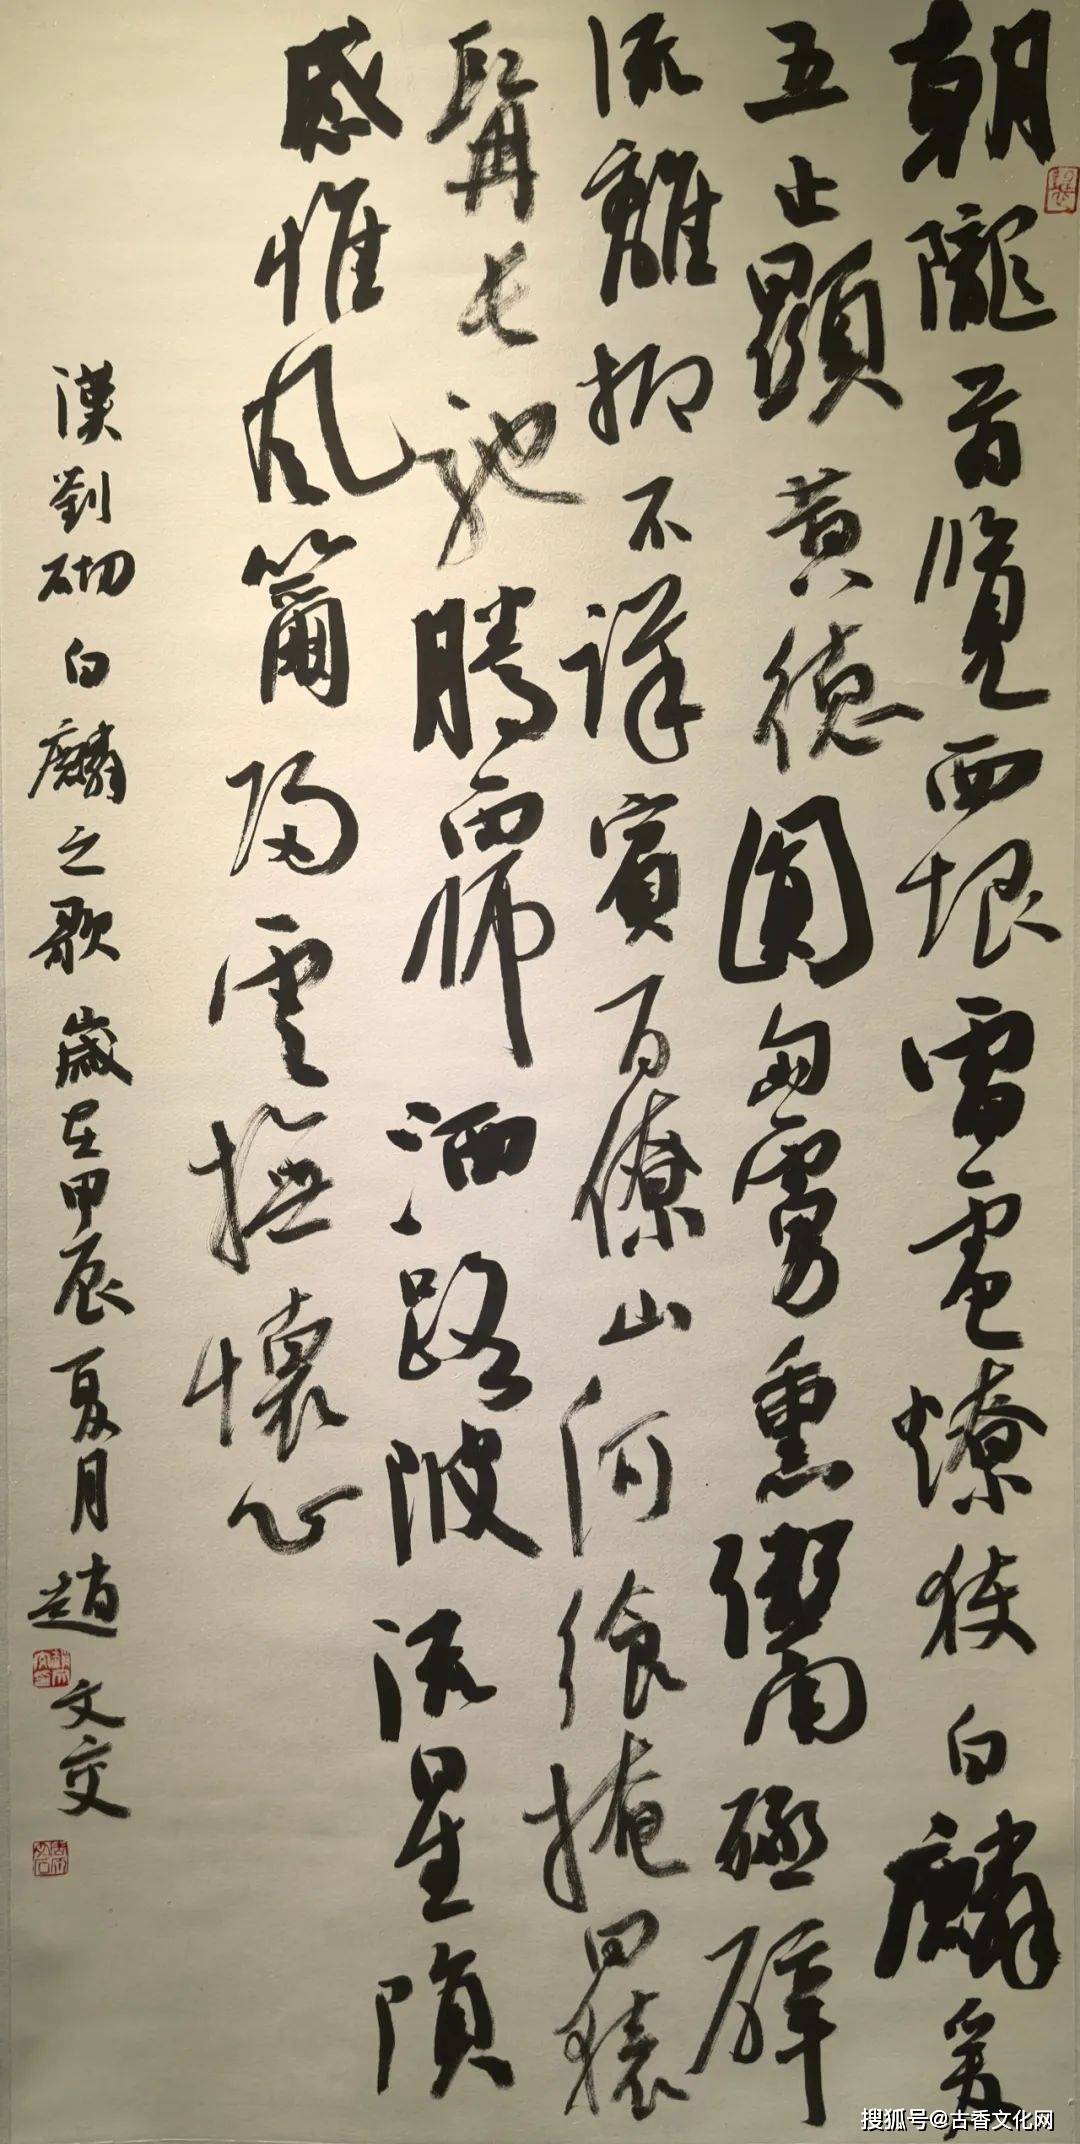 朝隴首覽西垠雷電燎獲白麟爰
五止顯黃德圓匈虐熏鬻殛辟
流離抑不詳賓百僚山河飨掩回猿
鬗長馳騰雨師洒路陂流星隕
感惟風籋歸雲撫懷心
漢劉砌白麟之歌歲在甲辰夏月趙文交
搜狐号@古香文化网